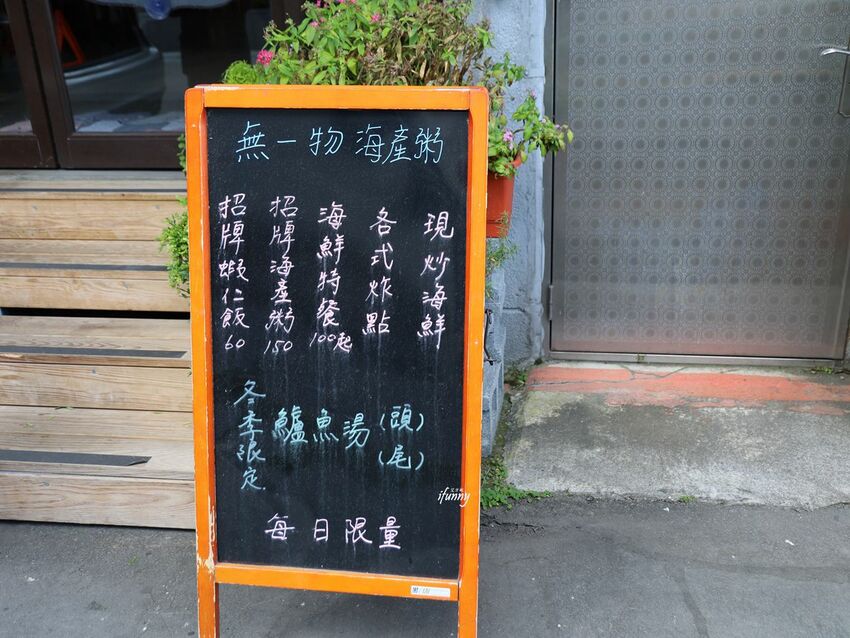 無一物海產粥
現炒海鮮
各式炸點
海鮮特餐100起
招牌海產粥150
招牌蝦仁飯60
冬季限定
鱸魚湯(頭)(尾)
每日限量
ifunny